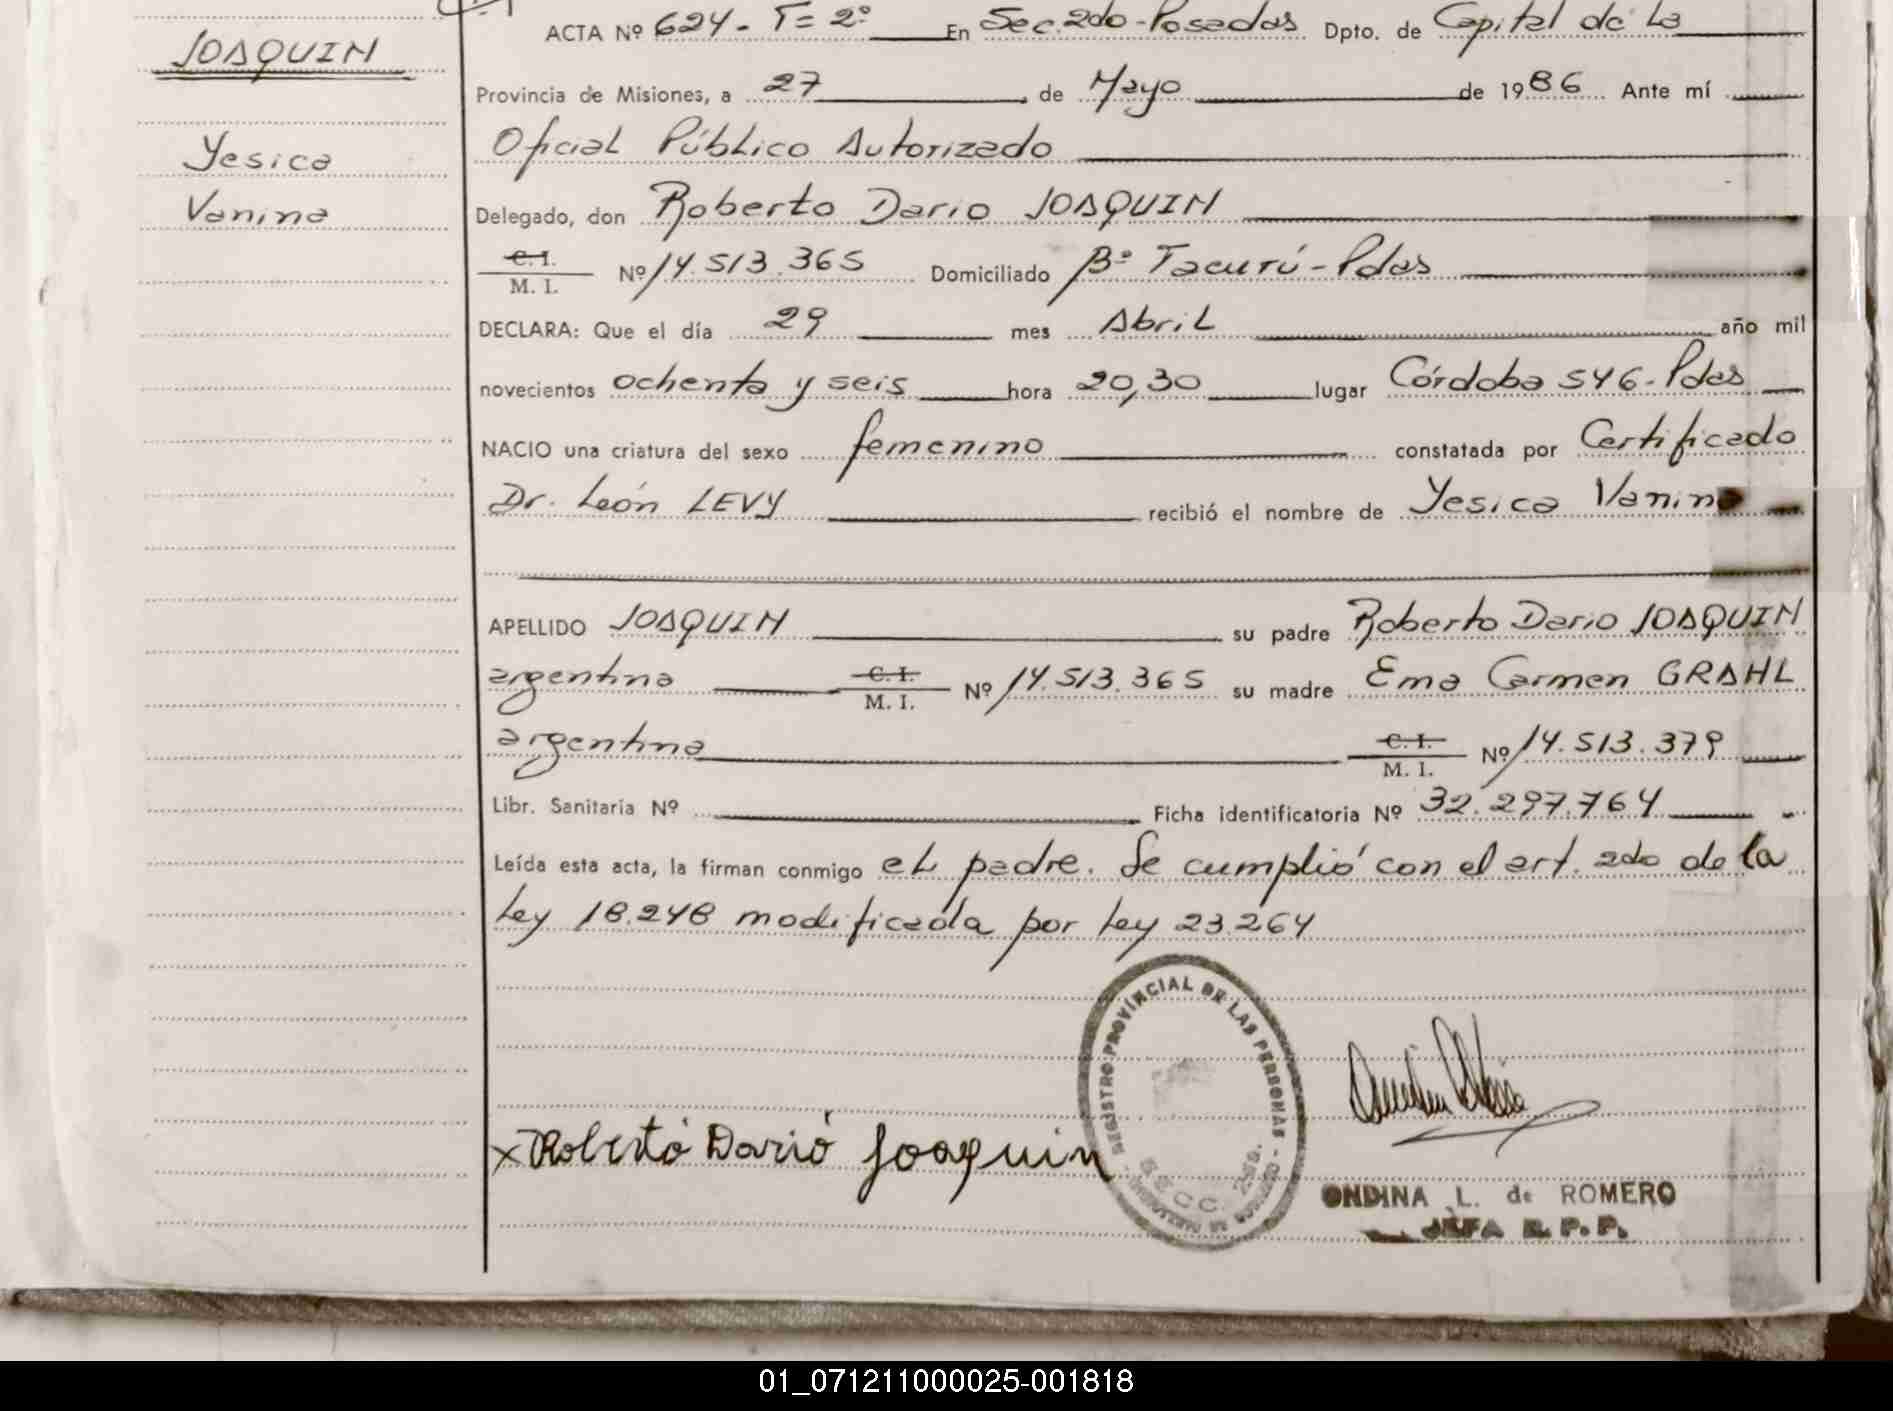 JOAQUIN
Yesica
Vanina
ACTA Nº 624 - T= 2º En Sec. 2do - Posadas Dpto. de Capital de La
Provincia de Misiones, a 27 de Mayo de 1986 Ante mí
Oficial Público Autorizado
Delegado, don Roberto Dario JOAQUIN
C.I. M. I. Nº 14.513.365 Domiciliado Bº Tacurú - Pdas
DECLARA: Que el día 29 mes Abril año mil
novecientos ochenta y seis hora 20,30 lugar Córdoba 546 - Pdas
NACIO una criatura del sexo femenino constatada por Certificado
Dr. León LEVY recibió el nombre de Yesica Vanina
APELLIDO JOAQUIN su padre Roberto Dario JOAQUIN
argentina C.I. M. I. Nº 14.513.365 su madre Ema Carmen GRAHL
argentina C.I. M. I. Nº 14.513.379
Libr. Sanitaria Nº Ficha identificatoria Nº 32.297.764
Leída esta acta, la firman conmigo el padre. Se cumplió con el art. 2do de la
Ley 18.248 modificada por Ley 23.264
REGISTRO PROVINCIAL DE LAS PERSONAS
x Robertó Darió Joaquin
ONDINA L. de ROMERO
JEFA R. P. P.
01_071211000025-001818